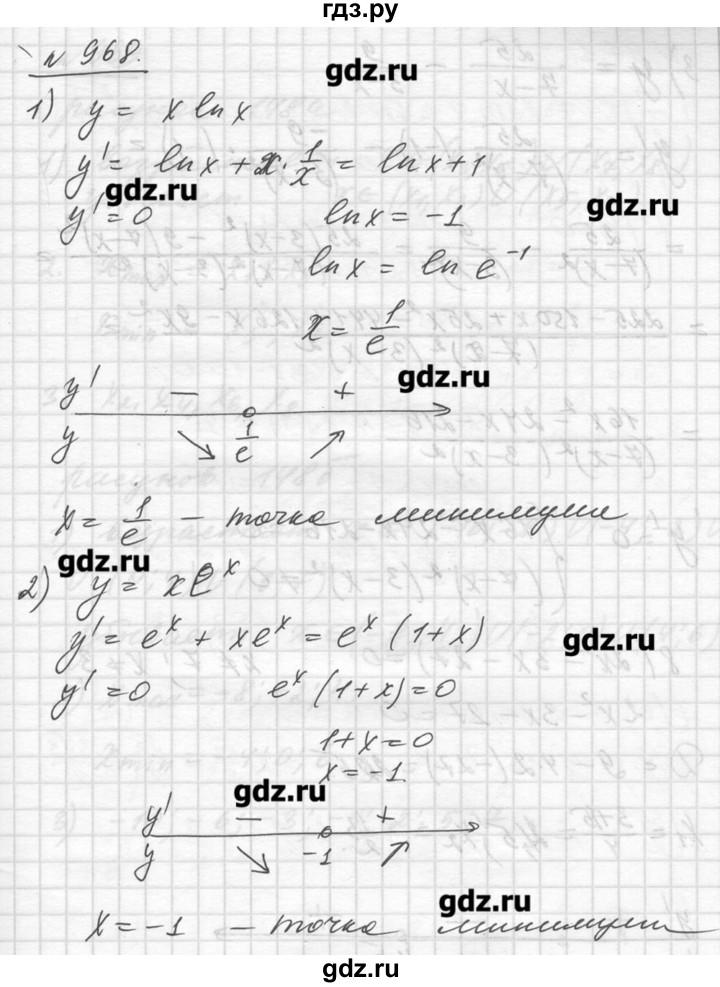 гдз.ру
№ 968.
gdz.ru
1) y = x ln x
y' = ln x + x · 1/x = ln x + 1
gdz.ru
gdz.ru
y' = 0 ln x = -1
ln x = ln e⁻¹
x = 1/e
gdz.ru
y' − +
y 1/e
x = 1/e – точка минимума
gdz.ru
2) y = xeˣ
y' = eˣ + xeˣ = eˣ (1+x)
gdz.ru
y' = 0 eˣ (1+x) = 0
1+x = 0
x = -1.
gdz.ru
y' − +
y -1
gdz.ru
x = -1 – точка минимума
gdz.ru